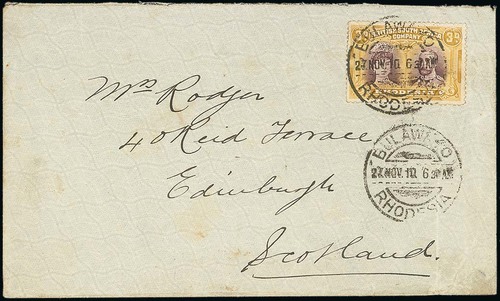 BRITISH SOUTH AFRICA
COMPANY
3d
BULAWAYO
27 NOV. 10. 6
RHODESIA
Mrs Rodger
40 Reid Terrace
Edinburgh
Scotland.
BULAWAYO
27. NOV. 10. 6 30 AM
RHODESIA